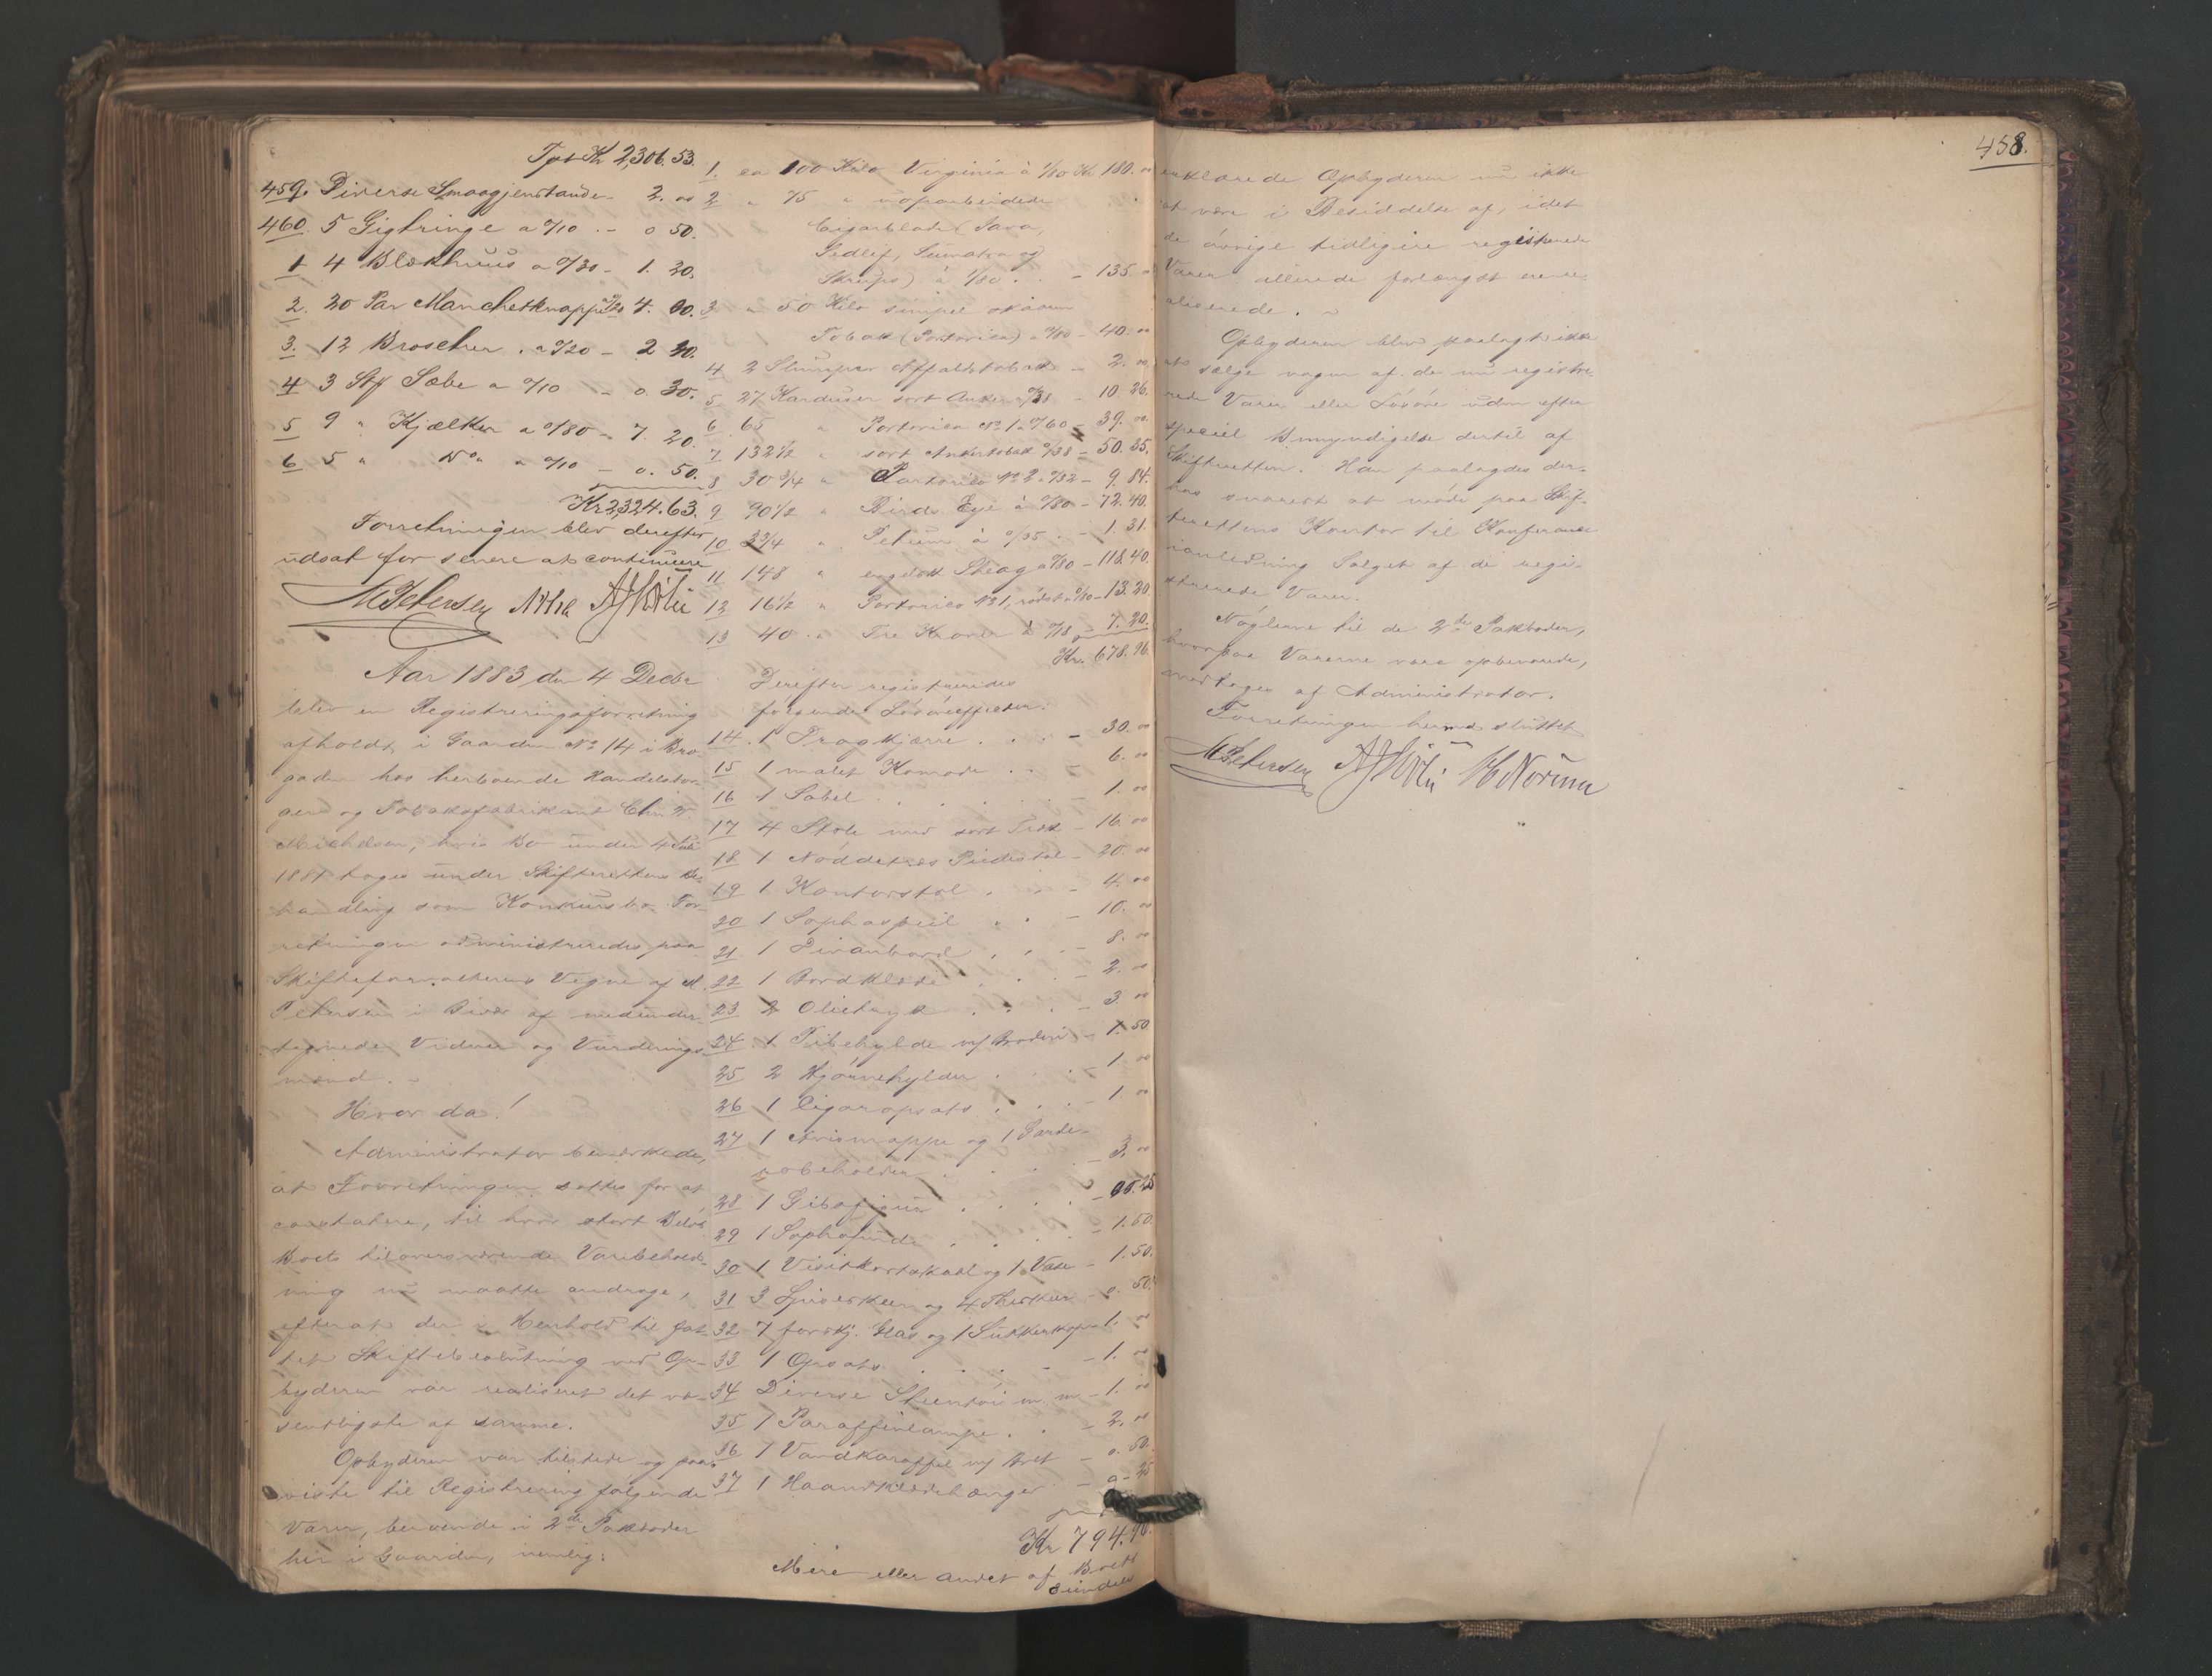 Tpt Kr 2,306.53.
459. Diverse Smaagjenstande - 2. 00
460. 5 Gigtringe a 0/10 . - 0 50.
1 4 Blækhuus a 0/30 - 1. 20.
2. 20 Par Manchetknapper a 0/20 4. 00.
3. 12 Broscher . a 0/20 - 2 40.
4 3 Stk Sæbe a 0/10 - 0. 30.
5 9 " Kjælker a 0/80 - 7. 20.
6 5 " Do " a 0/10 - 0. 50.
Kr 2324.63.
Forretningen blev derefter
udsat for senere at continuere
M Petersen
Aar 1883 den 4 Decbr
blev en Registreringsforretning
afholdt i Gaarden No 14 i
gaden hos herboende Handelsbor-
ger og Tobaksfabrikant Chr.
Michelsen, hvis Bo under 4 Juli
1881 toges under Skifterettens Be-
handling som Konkursbo. For-
retningen administreredes paa
Skifteforvalterens Vegne af M.
Petersen i Bivær af medunder-
tegnede Vidner og Vurderings-
mænd. -
Hvor da!
Administrator bemærkede,
at Forretningen sattes for at
constatere, til hvor stort Beløb
Boets tiloversværende Varebehold-
ning nu maatte andrage,
efterat der i Henhold til fat-
tet Skiftebeslutning ved Op-
byderen var realiseret det væ-
sentligste af samme.
Opbyderen var tilstede og paa-
viste til Registrering følgende
Varer, beroende i 2de Pakboder
her i Gaarden, nemlig:
1. ca 100 Kilo Virginia à 1/80 Kr 180. 00
2 " 75 " uoparbeidede
Cigarblade (Java,
Sedlif, Sumatra og
Skraps) à 1/80 . . - 135. 00
3 " 50 Kilo simpel skaaren
Tobak (Portorico) a 0/80 - 40. 00
4 2 Slumper Affaldstobak - 2. 00
5 27 Karduser sort Anker a 0/38 - 10. 26.
6 65 " Portorico No 1 a 0/60 - 39. 00
7 132 1/2 " sort Ankertobak 0/38 - 50. 35.
8 30 3/4 " Portorico No 2 a 0/32 - 9. 84.
9 90 1/2 " Birds Eye à 0/80 - 72. 40.
10 3 3/4 " Petum à 0/35 . - 1. 31.
11 148 " engelsk Shag a 0/80 - 118.40.
12 16 1/2 " Portorico No 1, rødt a 0/80 - 13.20.
13 40 . " Tre Kroner à 0/18 - 7. 20.
Kr. 678.96
Derefter registreredes
følgende Løsøreeffecter:
14. 1 Tragkjærre . . . - 30. 00
15 1 malet Komode . . - 6. 00
16 1 Sabel . . . . . - 1. 00
17 4 Stole med sort Træk - 16. 00
18 1 Nøddetræs Piedestal - 20. 00
19 1 Kontorstol . . . - 4. 00
20 1 Sophaspeil . . - 10. 00
21 1 Divanbord . . . - 8. 00
22 1 Bordklæde . . . - 2. 00
23 2 Olietryk . . . - 3. 00
24 1 Pibehylde m/ Broderi - 1. 50
25 2 Hjørnehylder . . . - 1 00
26 1 Cigaropsats . . . - 1. 00
27 1 Avismappe og 1 Garde-
robeholder . . . . - 3. 00
28 1 Gibsfigur . . . . - 0. 25
29 1 Sophapude . . . . - 1. 50.
30 1 Visitkortskaal og 1 Vase - 1. 50.
31 3 Spiseskeer og 4 Theskeer - 0. 50.
32 7 forskj. Glas og 1 Sukkerkop - 1. 00
33 1 Opsats . . . . - 1. 00
34 Diverse Steentøi m m. - 1. 00
35 1 Paraffinlampe . . - 2. 00
36 1 Vandkaraffel m/ Bret - 0. 50.
37 1 Haandklædehænger . - 0 - 25
Kr 794.
Mere eller andet af Boets
Eiendele
458.
erklærede Opbyderen nu ikke
at være i Besiddelse af, idet
de øvrige tidligere registrerede
Varer allerede forlængst ere re-
aliserede. -
Opbyderen blev paalagt ikke
at sælge nogen af de nu registre-
rede Varer eller Løsøre uden efter
speciel Bemyndigelse dertil af
Skifteretten. Han paalagdes der-
hos snarest at møde paa Skif-
terettens Kontor til Konferance
i Anledning Salget af de regi-
strerede Varer.
Nøglerne til de 2de Pakboder,
hvorpaa Varerne vare opbevarede,
modtoges af Administrator.
Forretningen hermed sluttet
M Petersen H Norum